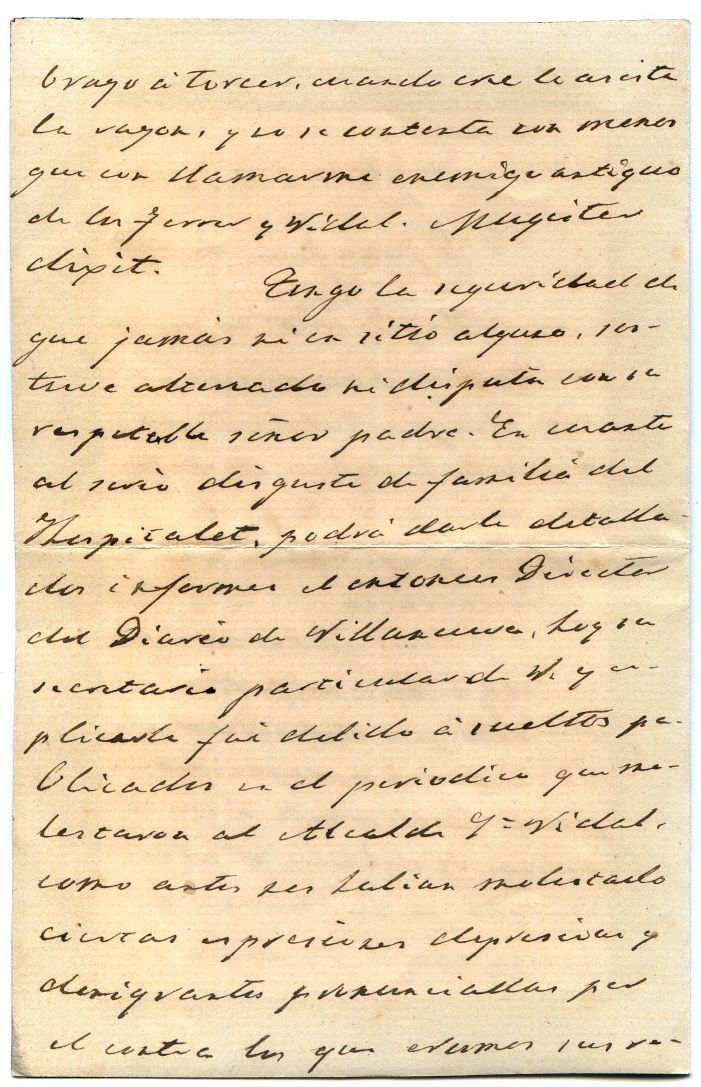 brazo á torcer, cuando cree le asiste
la razon, y no se contesta con menos
que con llamarme enemigo antiguo
de los Ferrer y Vidal. Magister
dixit.
Tengo la seguridad de
que jamás ni en sitio alguno, sos-
tuve altercado ni disputa con su
respetable señor padre. En cuanto
al serio disgusto de familia del
Hospitalet, podrá darle detalla-
dos informes el entonces Director
del Diario de Villanueva, hoy su
secretario particular de V. y es-
plicarle fué debido á sueltos pu-
blicados en el periodico que mo-
lestaron al Alcalde Sr Vidal.
como antes nos habian molestado
ciertas espresiones depresivas y
denigrantes pronunciadas por
el contra los que eramos sus re-